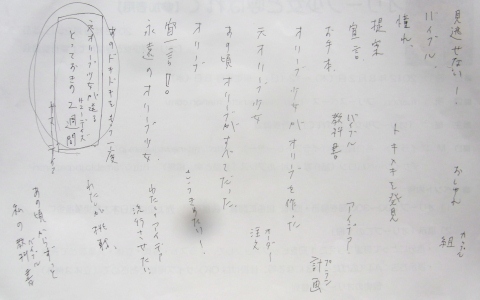 見逃せない!
バイブル
憧れ
提案
宣言
お手本
オリーブ少女がオリーブを作った
元オリーブ少女
あの頃オリーブがすべてだった
オリーブ
宣言!!
永遠のオリーブ少女
あのドキドキをもう一度
元オリーブ少女が送る
とっておきの2週間
トキメキを発見
バイブル
教科書
アイデア
プラン
計画
オーダー
注文
わたしのアイデア
流行させたい
わたしが挑戦
あの頃からずっと
私の教科書
バイブル